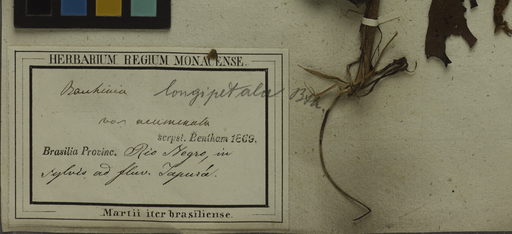 HERBARIUM REGIUM MONACENSE.
Bauhinia longipetala Bth.
var acuminata
scrpst. Bentham 1869.
Brasilia Provinc. Rio Negro, in
sylvis ad fluv. Japurá.
Martii iter brasiliense.